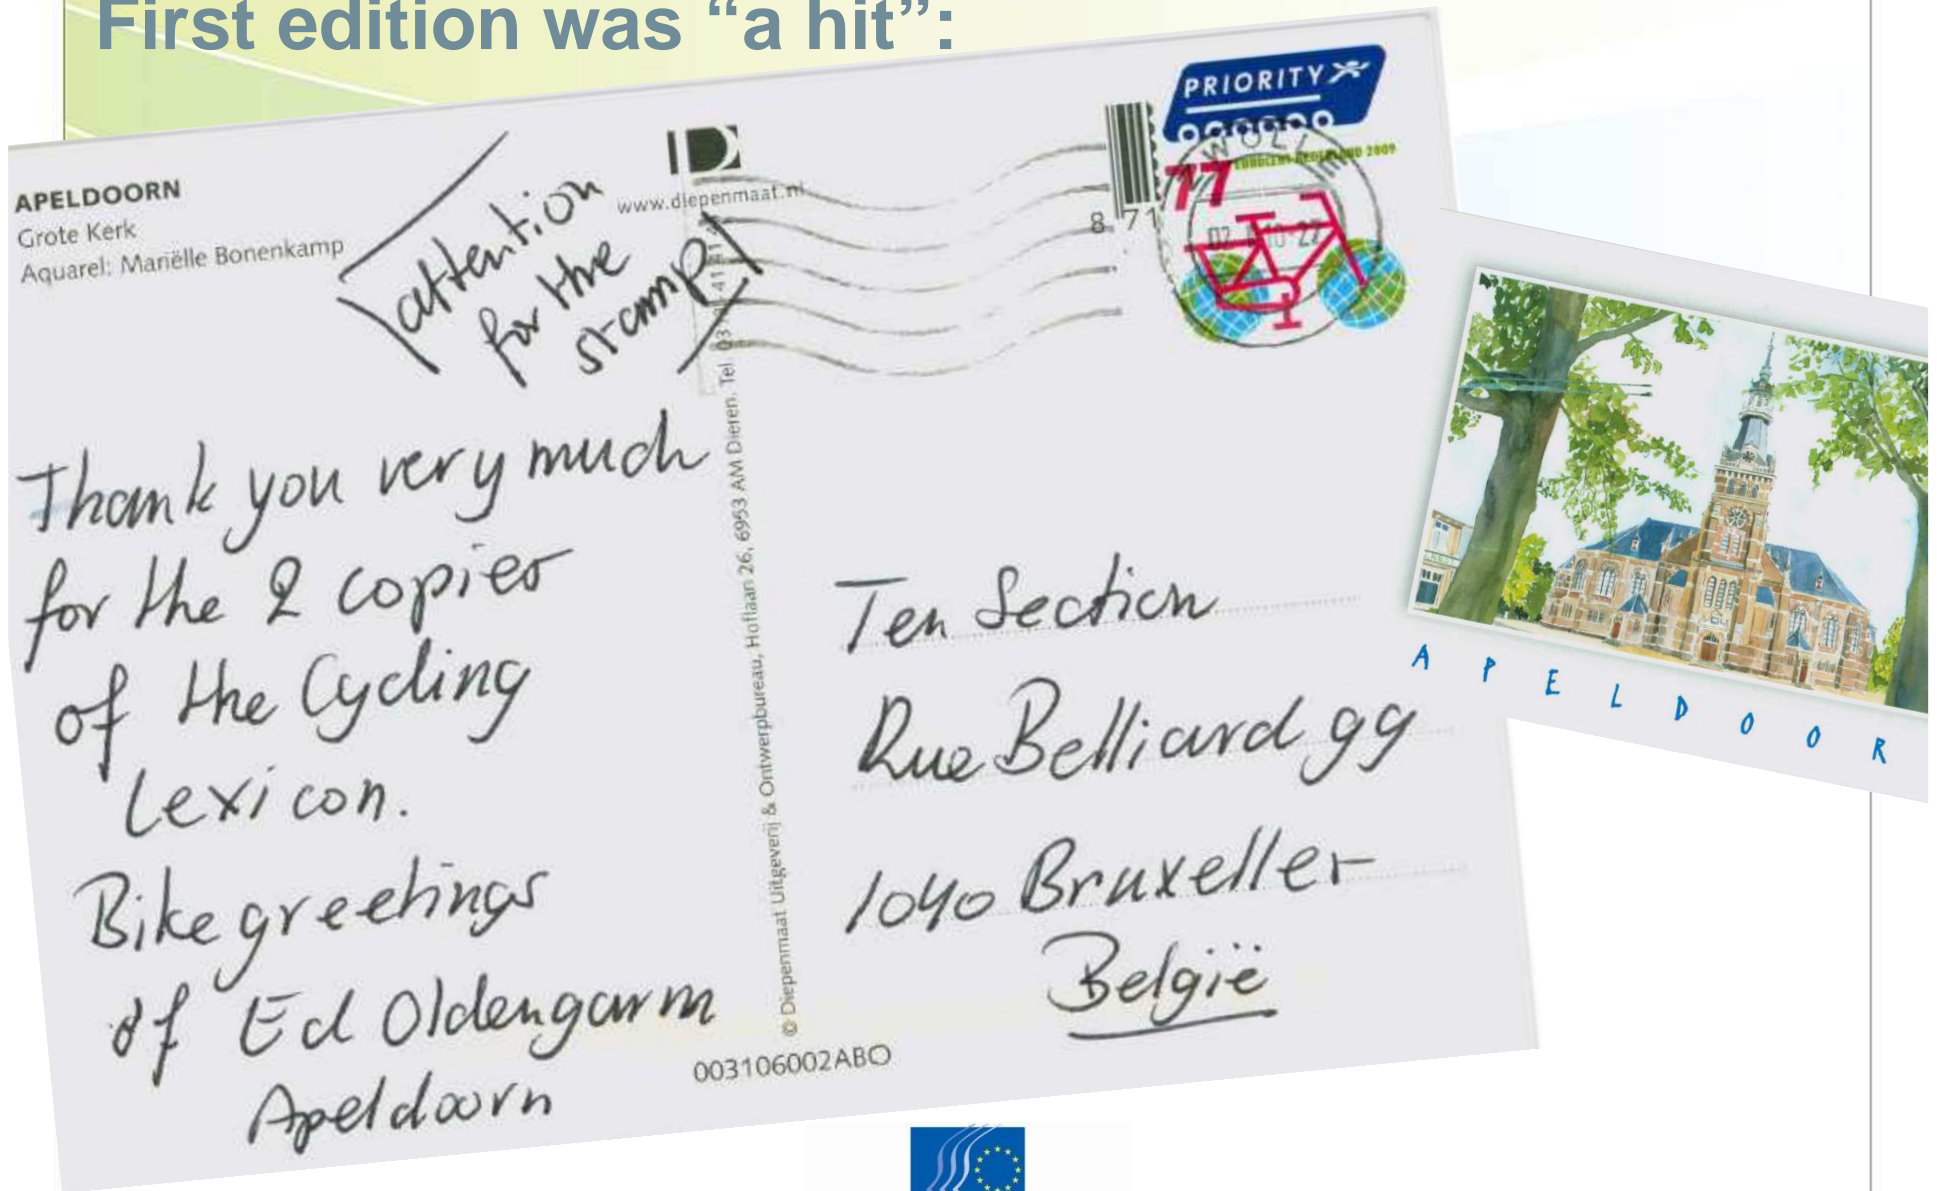 First edition was “a hit”:
APELDOORN
Grote Kerk
Aquarel: Mariëlle Bonenkamp
attention
for the
stamp!
www.diepenmaat.nl
PRIORITY
77
8 71
Thank you very much
for the 2 copies
of the Cycling
Lexicon.
Bike greetings
of Ed Oldengarm
Apeldoorn
© Diepenmaat Uitgeverij & Ontwerpbureau, Hoflaan 26, 6953 AM Dieren. Tel.
003106002ABO
Ten Section
Rue Belliard 99
1040 Bruxelles
België
APELDOOR